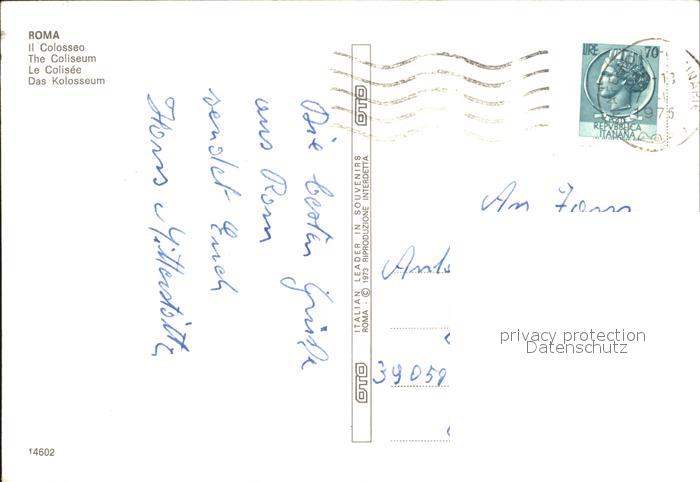 ROMA
Il Colosseo
The Coliseum
Le Colisée
Das Kolosseum
Die besten Grüße
aus Rom
sendet Euch
Hans
OTO
ITALIAN LEADER IN SOUVENIRS
ROMA - © 1973 RIPRODUZIONE INTERDETTA
OTO
LIRE 70
REPVBBLICA
ITALIANA
1975
An Fam
39050
privacy protection
Datenschutz
14602